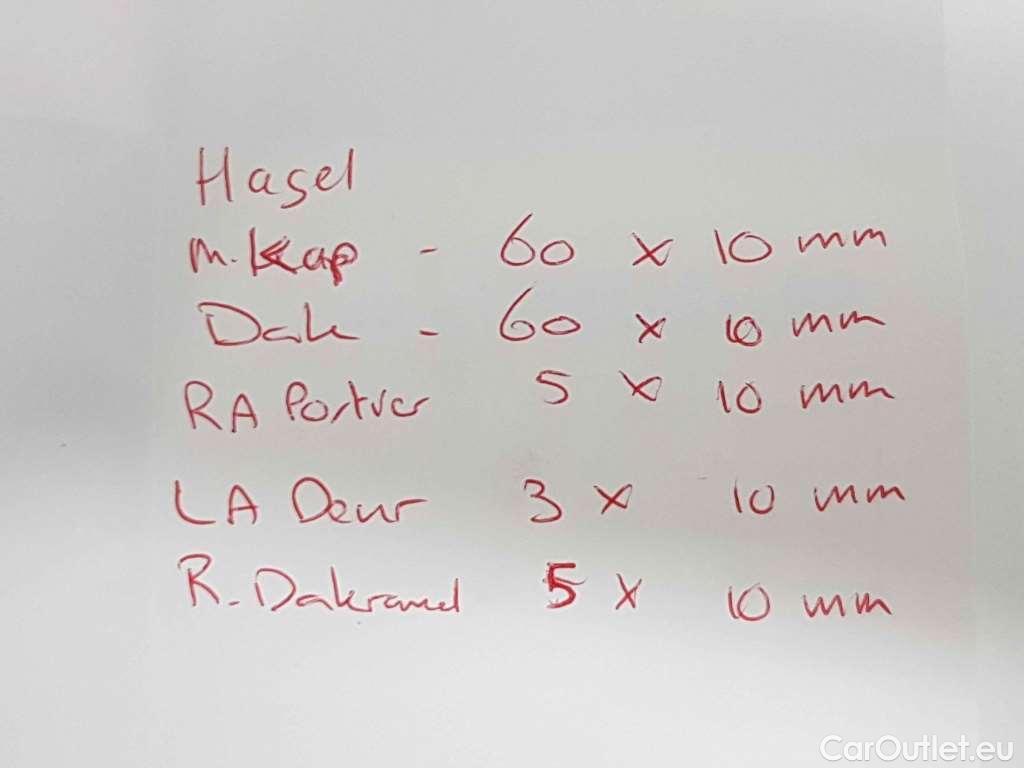 Hagel
M.Kap - 60 x 10 mm
Dak - 60 x 10 mm
RA Portier 5 x 10 mm
LA Deur 3 x 10 mm
R. Dakrand 5 x 10 mm
CarOutlet.eu